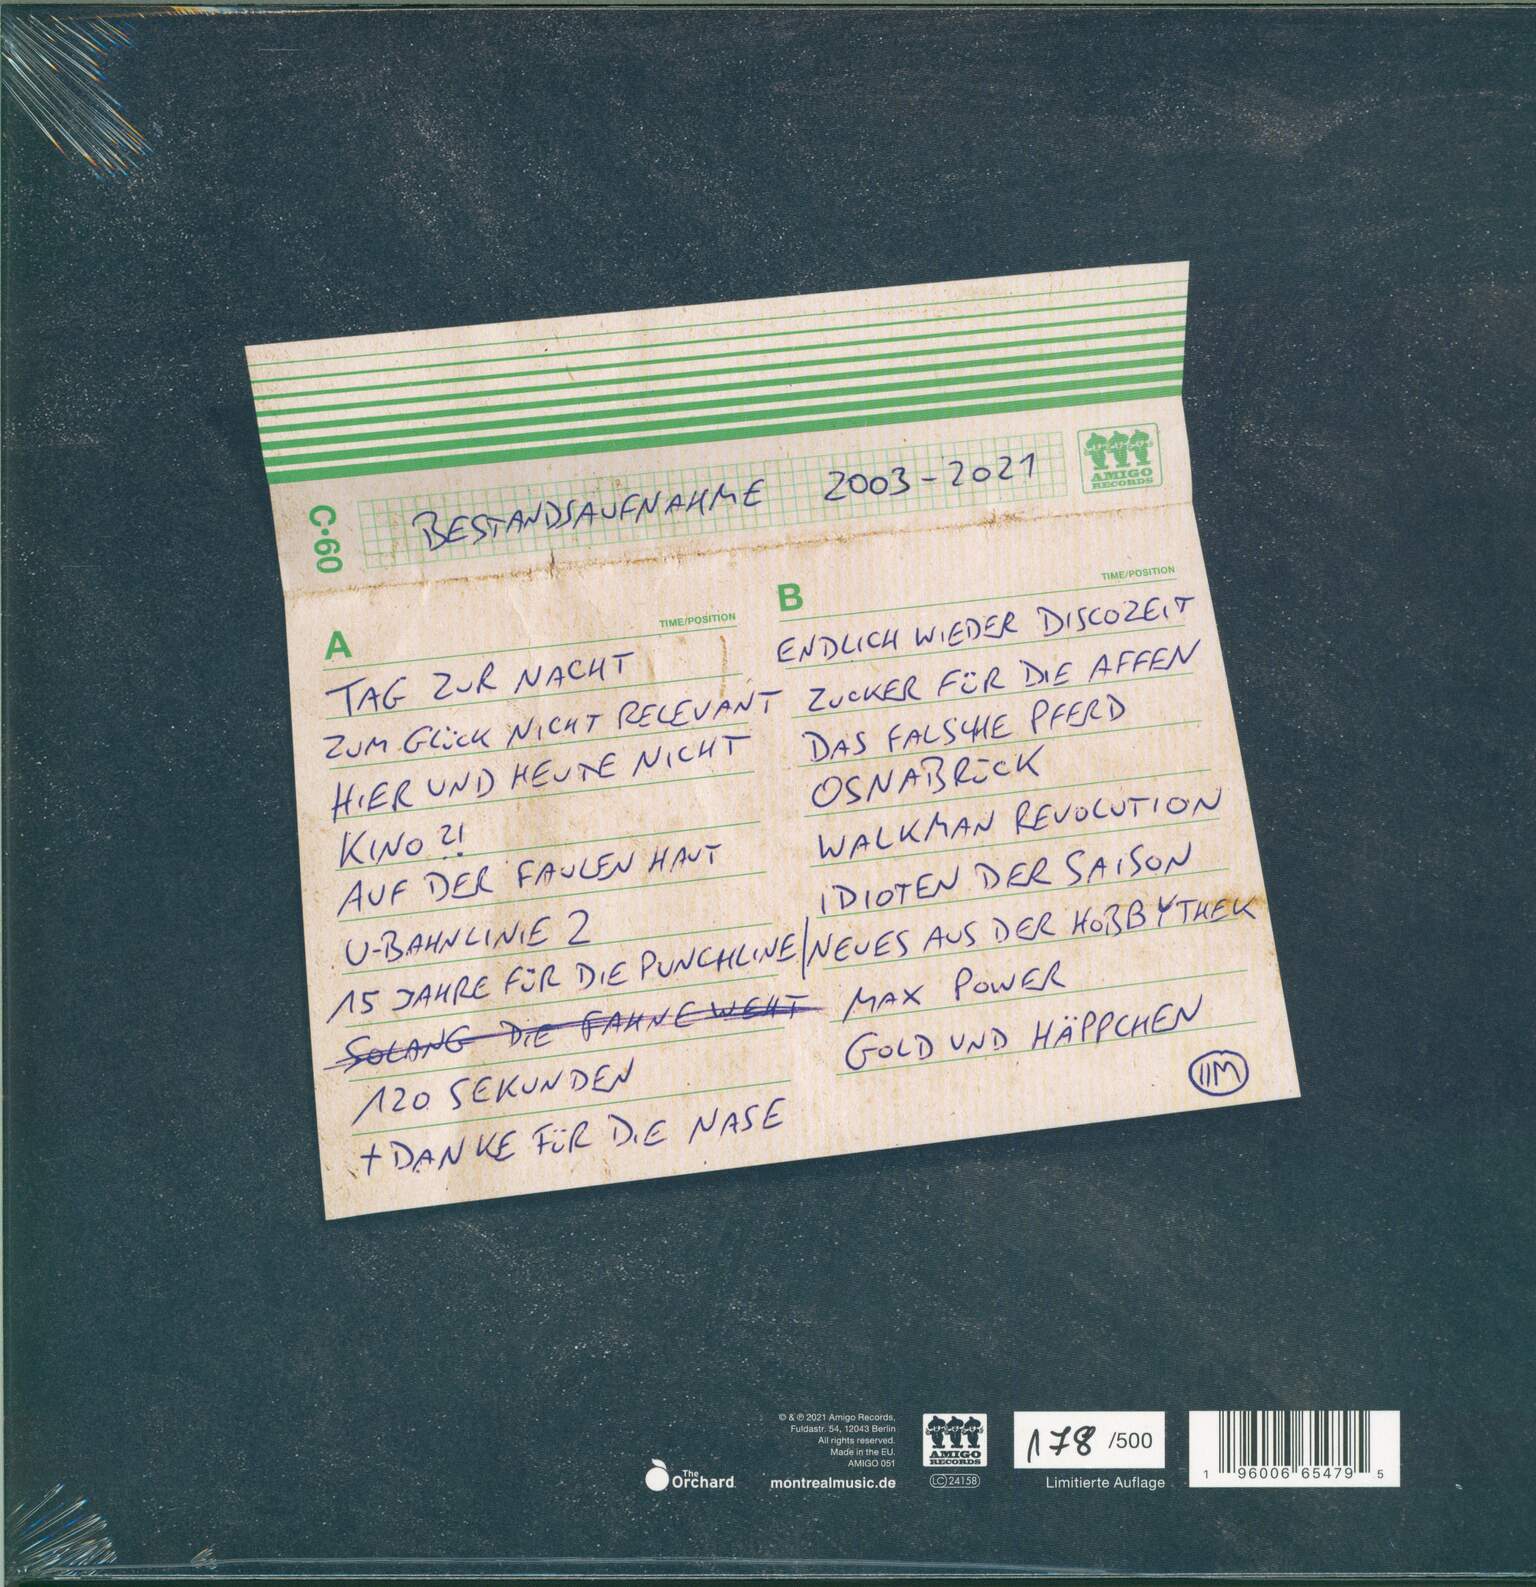 C·60
BESTANDSAUFNAHME 2003-2021
AMIGO
RECORDS
A
TIME/POSITION
TAG ZUR NACHT
ZUM GLÜCK NICHT RELEVANT
HIER UND HEUTE NICHT
KINO?!
AUF DER FAULEN HAUT
U-BAHNLINIE 2
15 JAHRE FÜR DIE PUNCHLINE
SOLANG DIE FAHNE WEHT
120 SEKUNDEN
+ DANKE FÜR DIE NASE
B
TIME/POSITION
ENDLICH WIEDER DISCOZEIT
ZUCKER FÜR DIE AFFEN
DAS FALSCHE PFERD
OSNABRÜCK
WALKMAN REVOLUTION
IDIOTEN DER SAISON
NEUES AUS DER HOBBYTHEK
MAX POWER
GOLD UND HÄPPCHEN
IIM
The
Orchard
© & ℗ 2021 Amigo Records,
Fuldastr. 54, 12043 Berlin
All rights reserved.
Made in the EU.
AMIGO 051
montrealmusic.de
AMIGO
RECORDS
LC 24158
178 /500
Limitierte Auflage
1 96006 65479 5